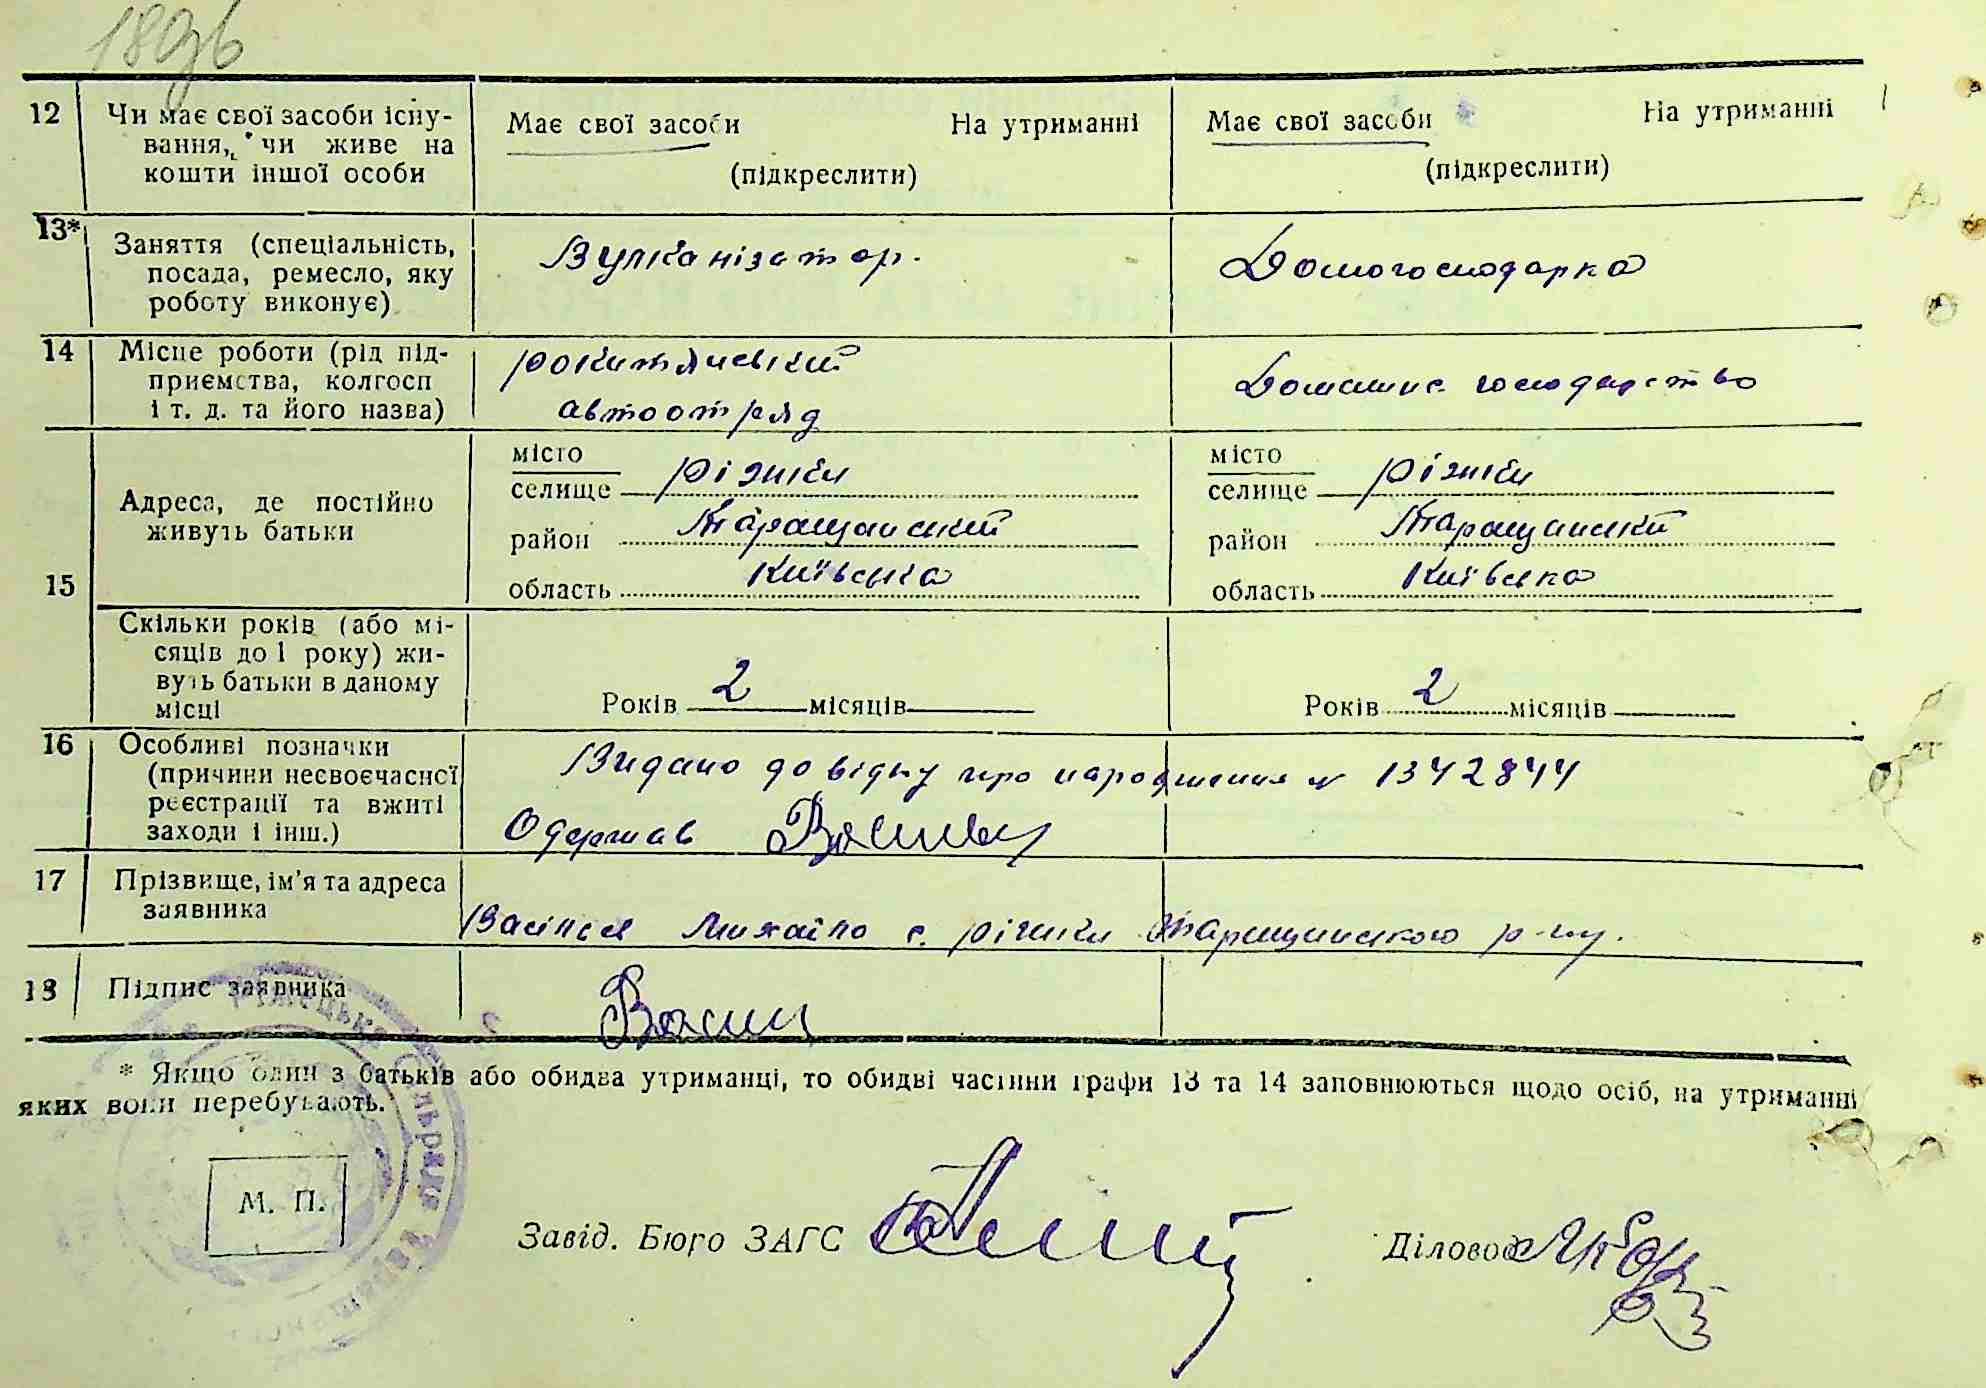 12
Чи має свої засоби існу-
вання, чи живе на
кошти іншої особи
Має свої засоби На утриманні
(підкреслити)
Має свої засоби На утриманні
(підкреслити)
13*
Заняття (спеціальність,
посада, ремесло, яку
роботу виконує)
Вулканізатор.
Домогосподарка
14
Місце роботи (рід під-
приємства, колгосп
і т. д. та його назва)
рокитянський
автоотряд
Домашнє господарство
15
Адреса, де постійно
живуть батьки
місто
селище ріжки
район Таращанський
область Київська
місто
селище ріжки
район Таращанський
область Київська
Скільки років (або мі-
сяців до 1 року) жи-
вуть батьки в даному
місці
Років 2 місяців
Років 2 місяців
16
Особливі позначки
(причини несвоєчасної
реєстрації та вжиті
заходи і інш.)
Видано довідку про народження № 1342844
Одержав
17
Прізвище, ім'я та адреса
заявника
Михайло с. ріжки Таращанського р-ну.
18
Підпис заявника
* Якщо один з батьків або обидва утриманці, то обидві частини графи 13 та 14 заповнюються щодо осіб, на утриманні
яких вони перебувають.
М. П.
Завід. Бюро ЗАГС
Діловод